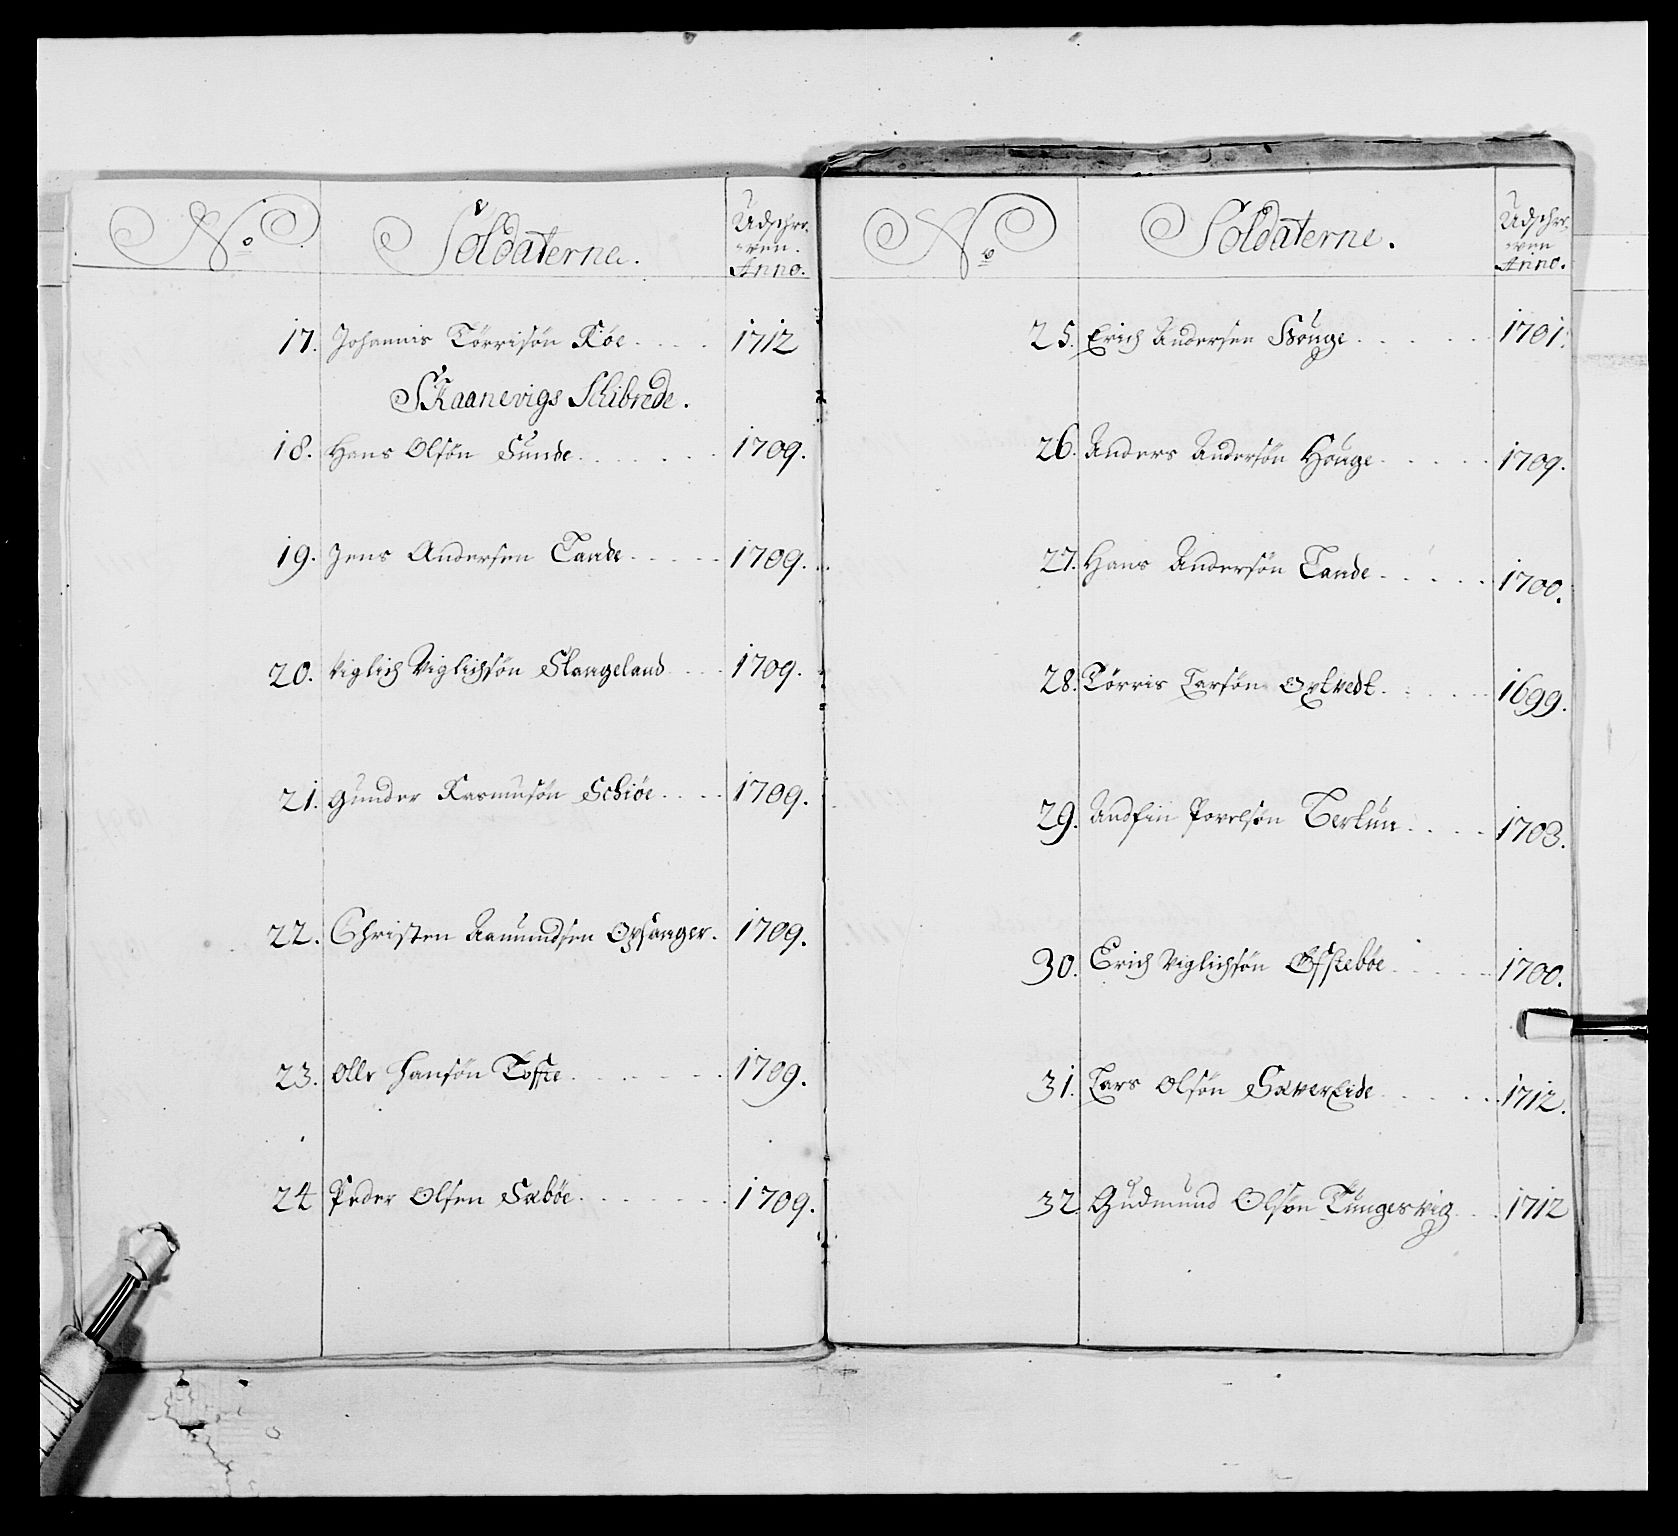 No
Soldaterne.
Udschre-
ven.
Anno.
17. Johannis Törrisön Röe 1712
SKaanevigs Schibrede.
18. Hans Olsön Sunde 1709.
19. Jens Andersen Tande 1709.
20. Viglich Viglichsön Slangeland 1709.
21. Gunder Rasmusön Schiöe 1709.
22. Christen Aamundsen Opsanger. 1709.
23. Olle Hansön Tofte 1709.
24 Peder Olsen Sæböe 1709.
No
Soldaterne.
Udschre-
ven
Anno.
25. Erich Andersen Houge 1701.
26. Anders Andersön Houge 1709.
27. Hans Andersön Tande 1700.
28. Törris Larsön Oxlvedt 1699.
29. Andfin Povelsön 1703.
30. Erich Viglichsön Öfsteböe 1700.
31. Lars Olsön SæverEide 1712.
32. Gudmund Olsön Tungesvig 1712